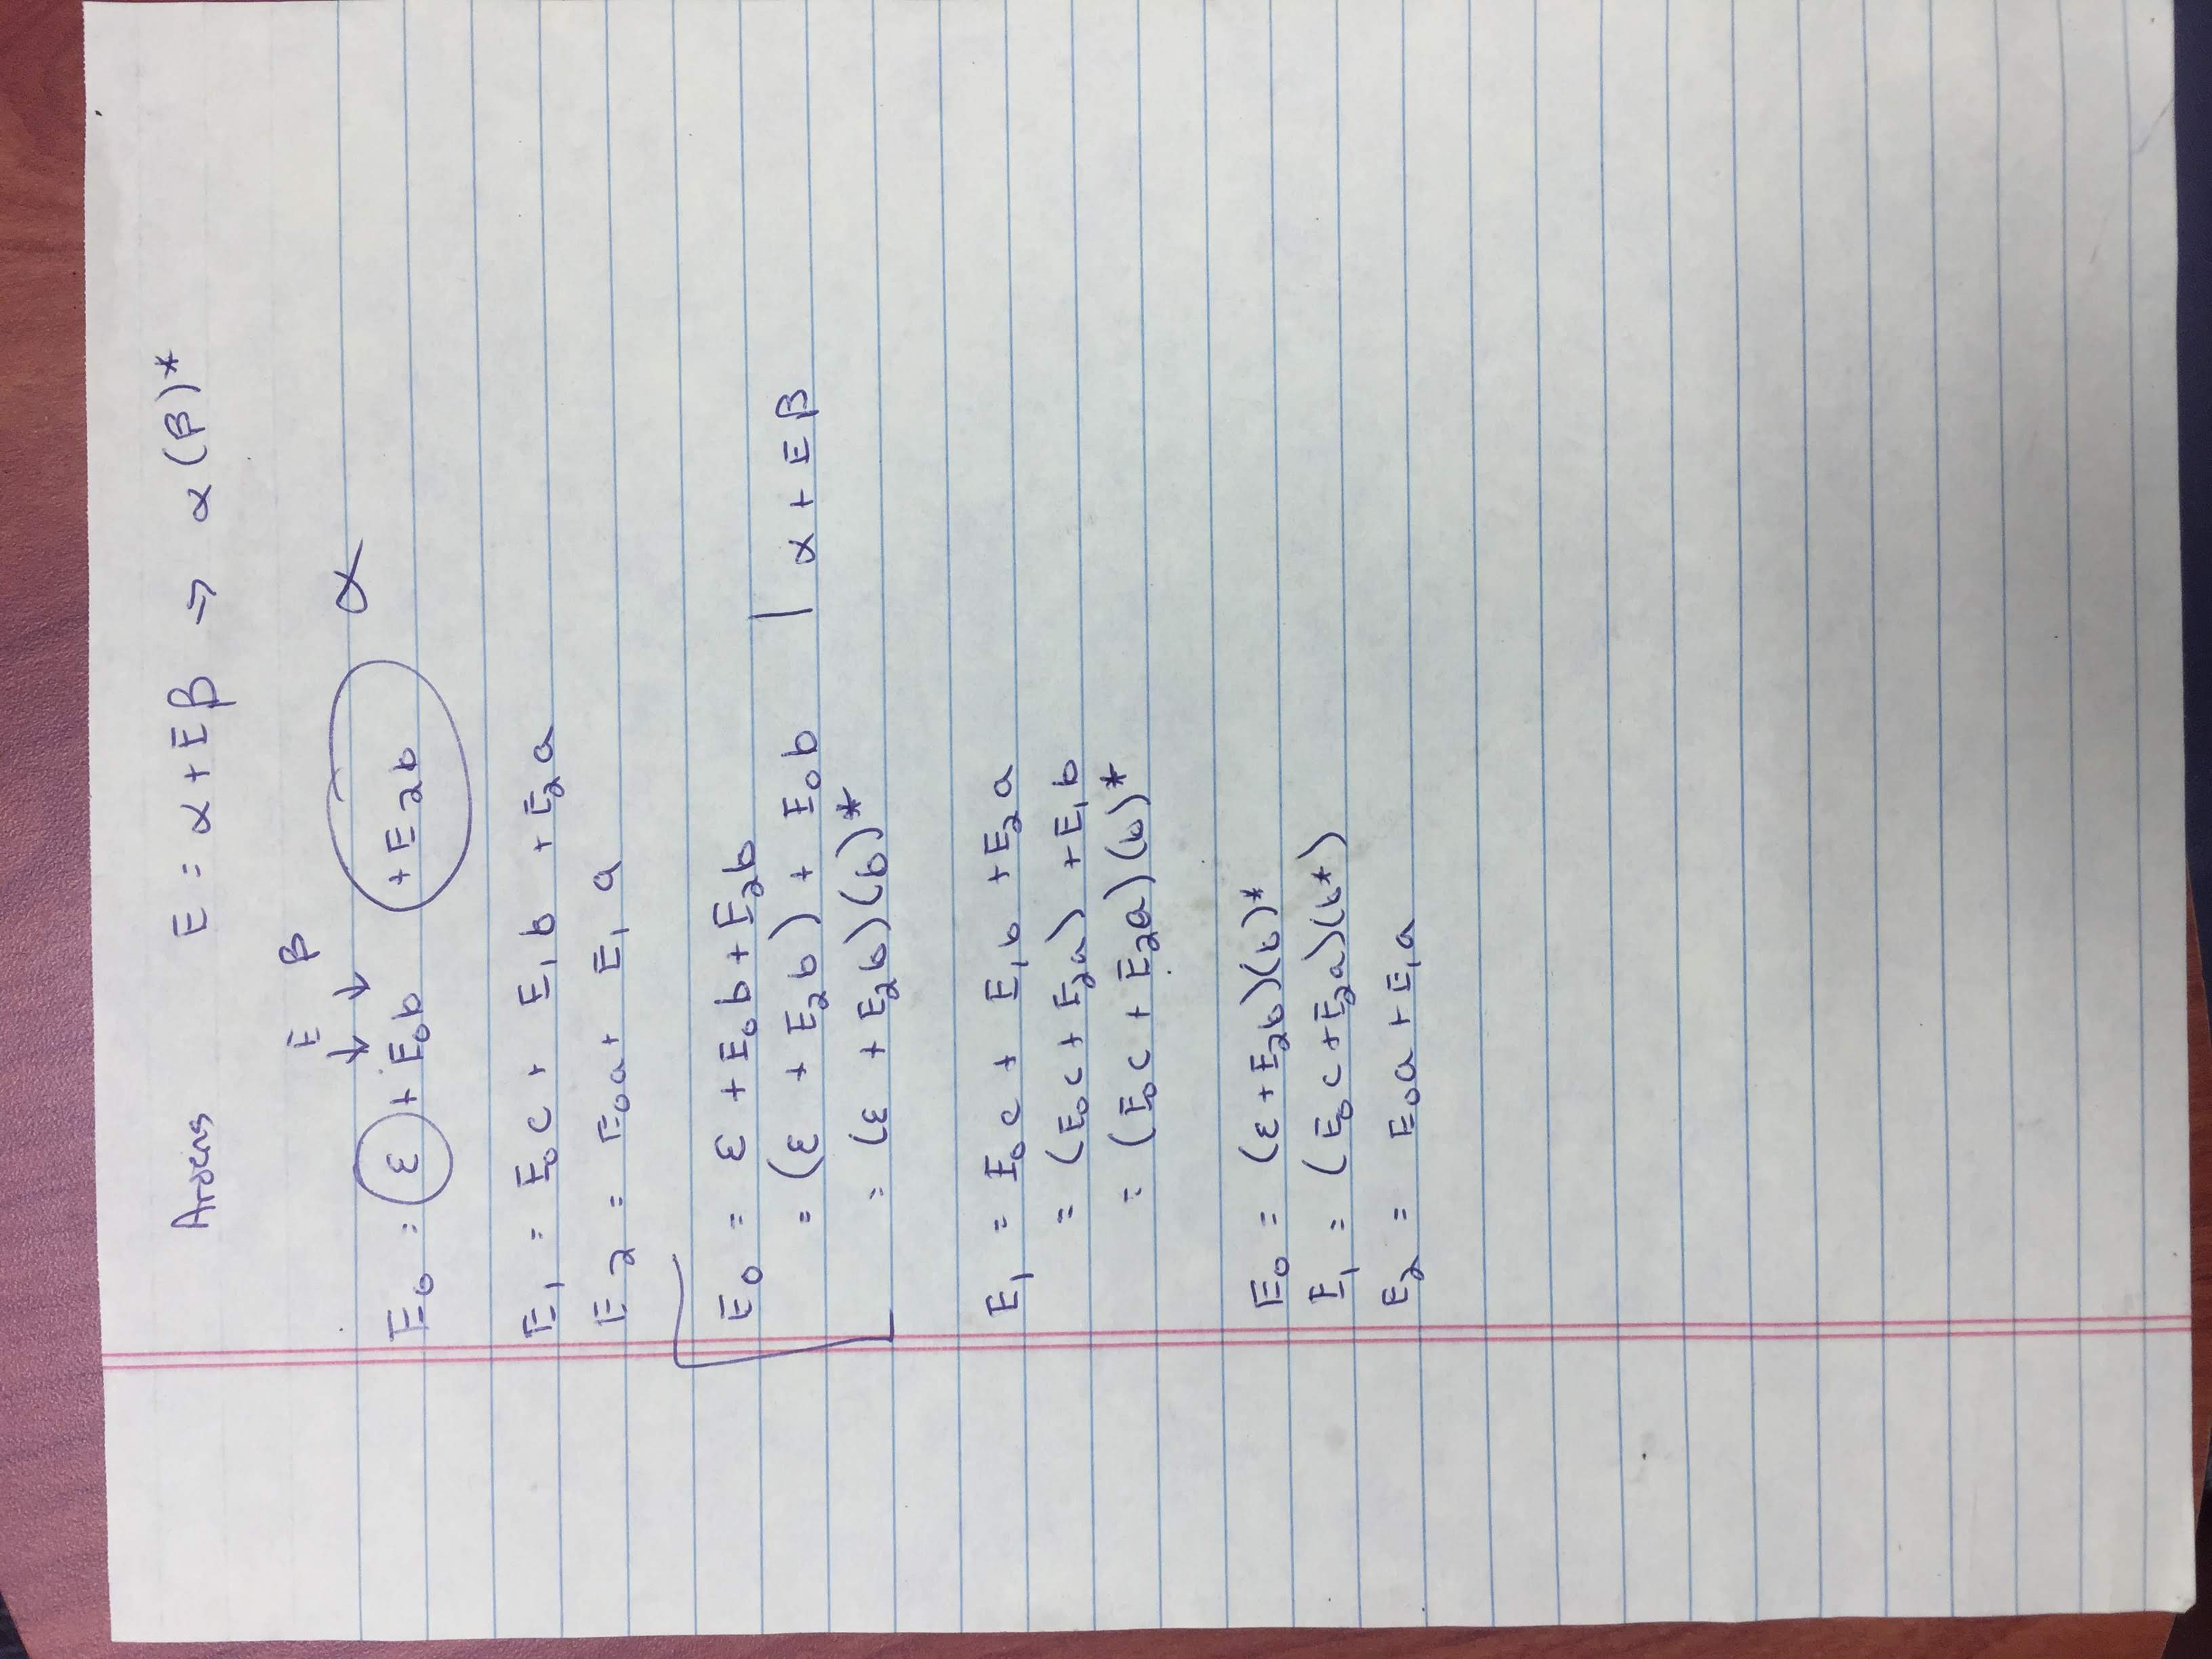 Ardens E = α + Eβ → α(β)*
E β
↓ ↓
E₀ = ε + E₀b + E₂b α
E₁ = E₀c + E₁b + E₂a
E₂ = E₀a + E₁a
E₀ = ε + E₀b + E₂b
= (ε + E₂b) + E₀b | α + Eβ
= (ε + E₂b)(b)*
E₁ = E₀c + E₁b + E₂a
= (E₀c + E₂a) + E₁b
= (E₀c + E₂a)(b)*
E₀ = (ε + E₂b)(b)*
E₁ = (E₀c + E₂a)(b*)
E₂ = E₀a + E₁a